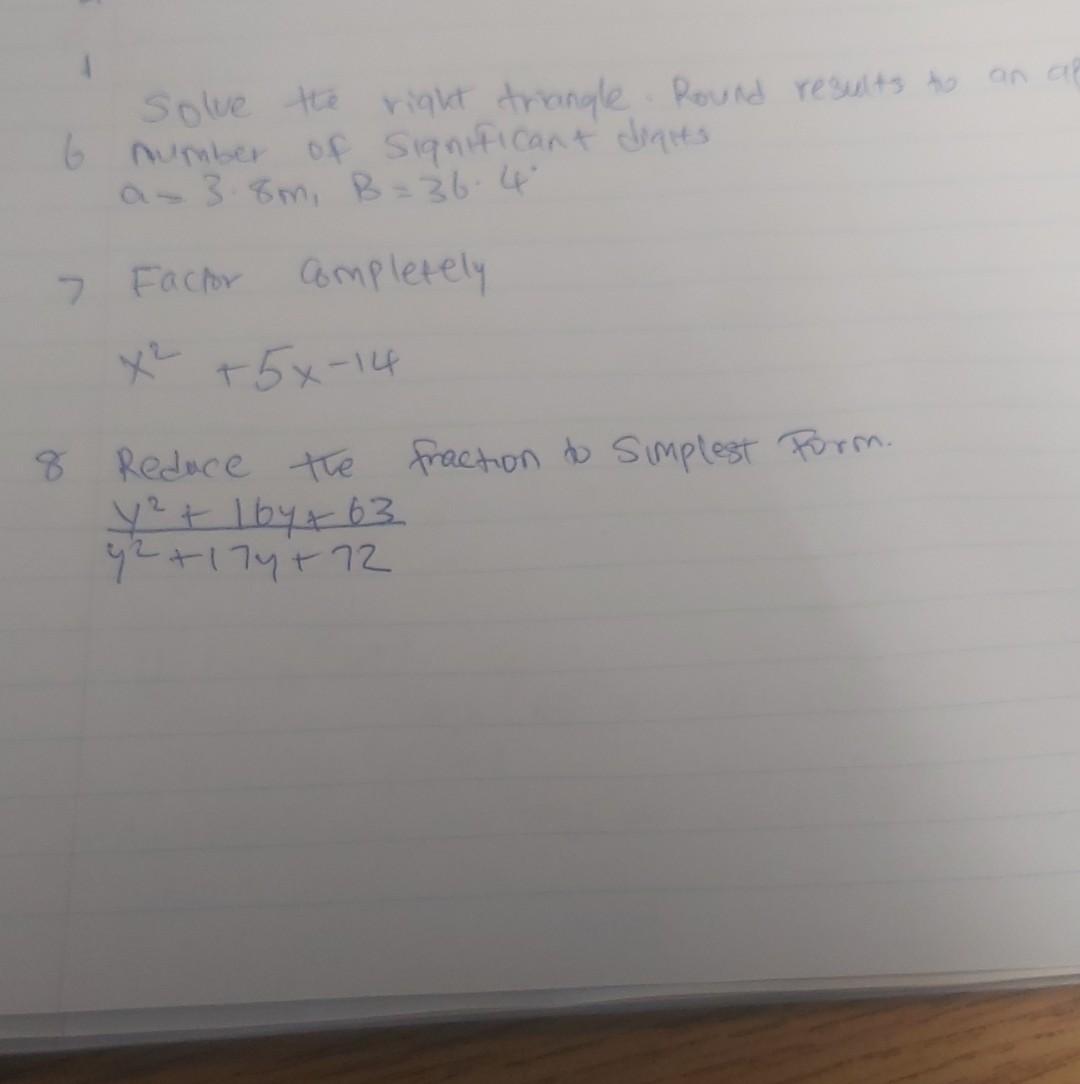 1
Solve the right triangle. Round results to an
6 number of significant digits
a = 3.8m, B = 36.4°
7 Factor completely
x² + 5x - 14
8 Reduce the fraction to simplest Form.
y² + 16y + 63
y² + 17y + 72